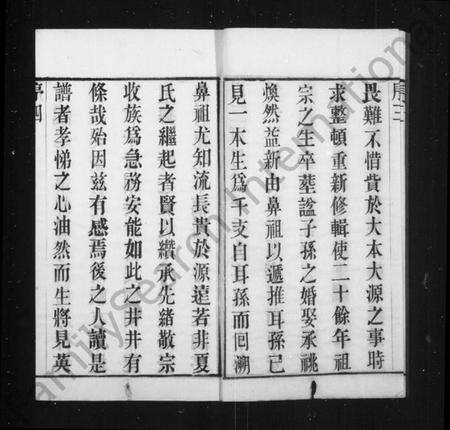 序三
畏難不惜貲於大本大源之事時
求整頓重新修輯使二十餘年祖
宗之生卒塟諡子孫之婚娶承祧
煥然益新由鼻祖以遞推耳孫已
見一本生為千支自耳孫而囘溯
鼻祖尤知流長貴於源遠若非夏
氏之繼起者賢以纘承先緒敬宗
收族為急務安能如此之井井有
條哉殆因玆有感焉後之人讀是
譜者孝悌之心油然而生將見英
序四
FamilySearch International